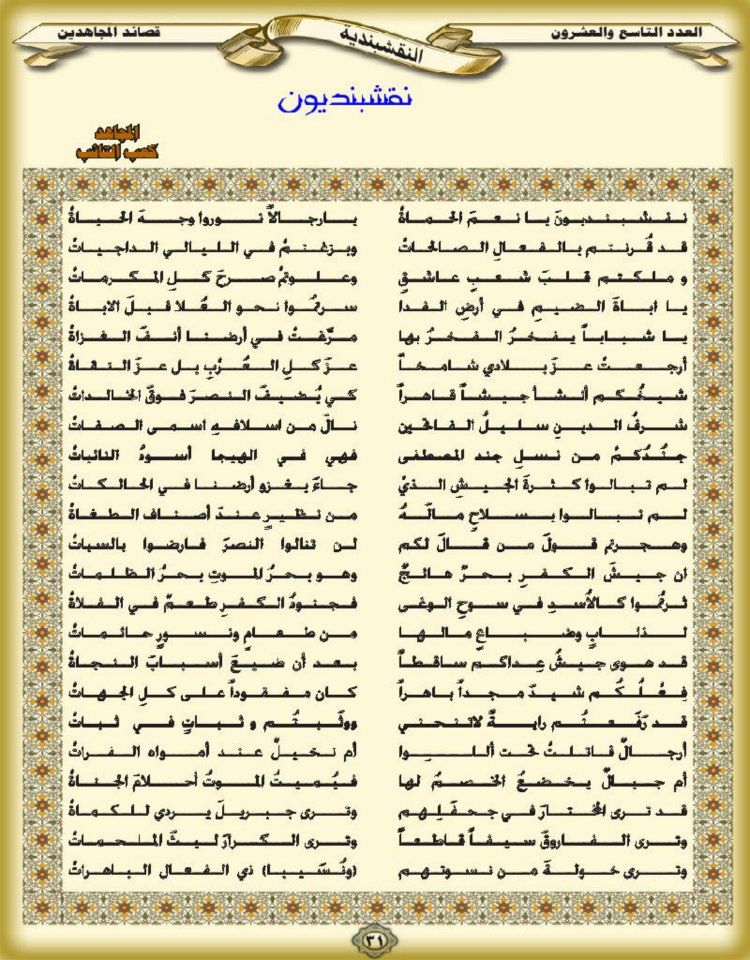 العدد التاسع والعشرون
النقشبندية
قصائد المجاهدين
نقشبنديون
المجاهد
كعب التائب
نقشبنديونَ يا نعمَ الحماةْ يارجالاً نوروا وجهَ الحياةْ
قد قُرنتم بالفعالِ الصالحاتْ وبزغتمْ في الليالي الداجياتْ
وملكتم قلبَ شعبٍ عاشقٍ وعلوتمْ صرحَ كلِ المكرماتْ
يا اباةَ الضيمِ في أرضِ الفدا سرتمُوا نحو العُلا قبلَ الاباةْ
يا شباباً يفخرُ الفخرُ بها مرّغتْ في أرضنا أنفَ الغزاةْ
أرجعتْ عزَ بلادي شامخاً عزَ كلِ العُرْبِ بل عزَ التقاةْ
شيخُكم أنشأ جيشاً قاهراً كي يُضيفَ النصرَ فوقَ الخالداتْ
شرفُ الدينِ سليلُ الفاتحين نالَ من اسلافهِ اسمى الصفاتْ
جُندُكمْ من نسلِ جند المصطفى فهي في الهيجا أسودُ النائباتْ
لم تبالوا كثرةَ الجيشِ الذيْ جاءَ يغزو أرضنا في الحالكاتْ
لم تبالوا بسلاحٍ مالَهُ من نظيرٍ عندَ أصناف الطغاةْ
وهجرتم قولَ من قالَ لكم لن تنالوا النصرَ فارضوا بالسباتْ
ان جيشَ الكفرِ بحرٌ هائجٌ وهو بحرُ الموتِ بحرُ الظلماتْ
ثرتمُوا كالأسدِ في سوحِ الوغى فجنودُ الكفرِ طعمٌ في الفلاةْ
لذئابٍ وضباعٍ مالها من طعامٍ ونسورٍ حائماتْ
قد هوى جيشُ عِداكم ساقطاً بعد أن ضيعَ أسبابَ النجاةْ
فِعلُكُم شيدَ مجداً باهراً كان مفقوداً على كلِ الجهاتْ
قد رَفَعتُم رايةً لاتنحني ووثبتُم وثباتٍ في ثباتْ
أرجالٌ قاتلتْ تحت أللوا أم نخيلٌ عند أمواه الفراتْ
أم جبالٌ يخضعُ الخصمُ لها فيُميتُ الموتُ أحلامَ الجناةْ
قد ترى المختارَ في جحفلِهم وترى جبريلَ يردي للكماةْ
وترى الفاروقَ سيفاً قاطعاً وترى الكرارَ ليثَ الملحماتْ
وترى خولةَ من نسوتهم (ونُسَيبا) ذي الفعال الباهراتْ
٣١